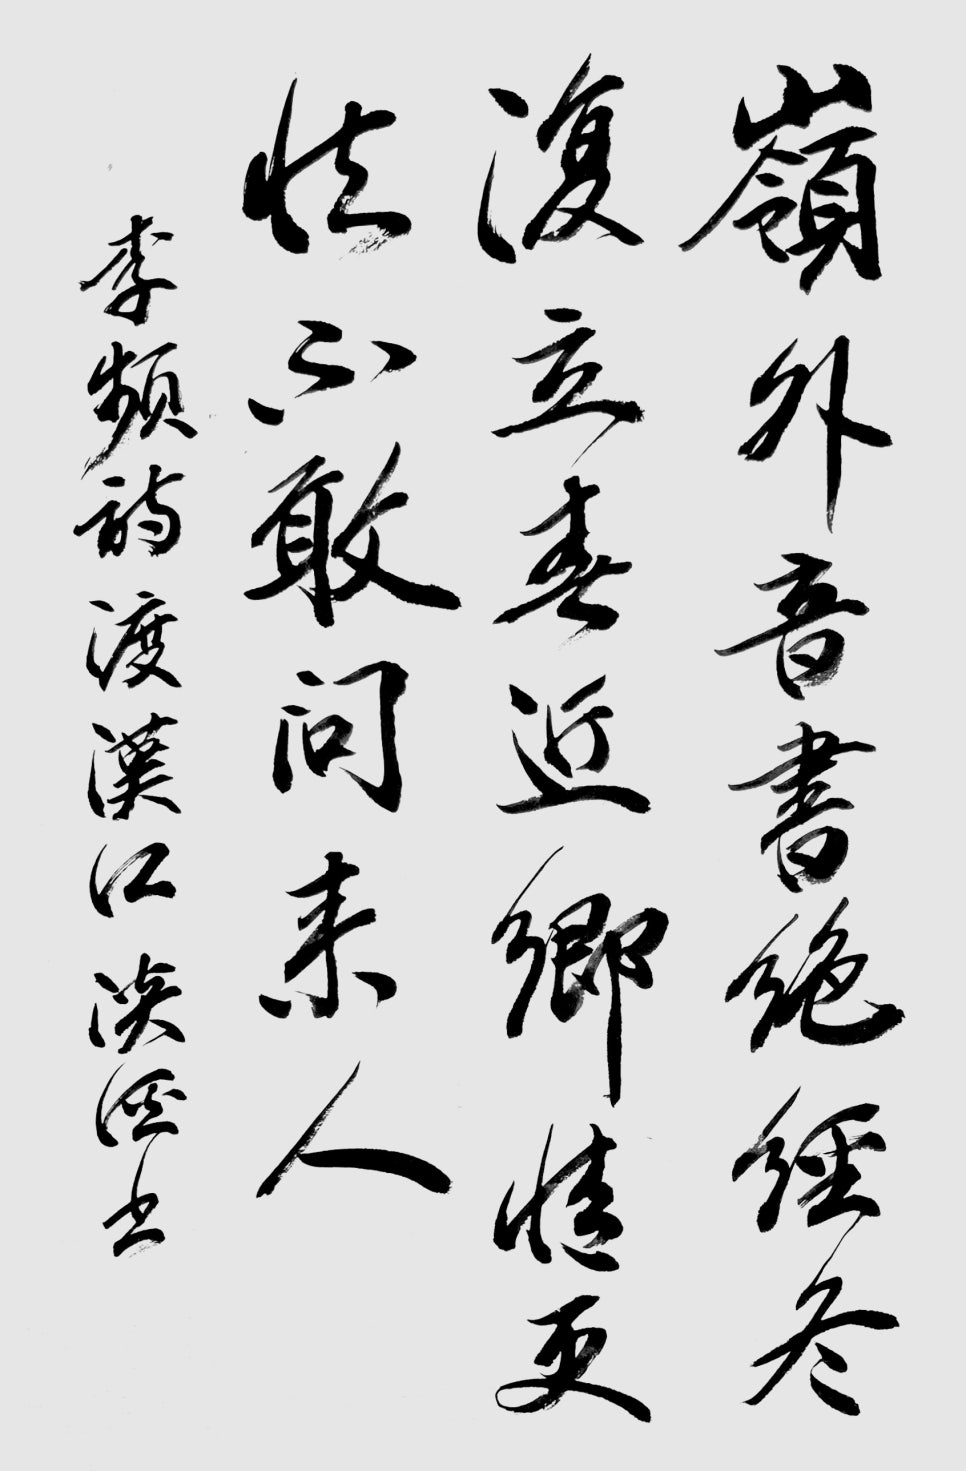 嶺外音書絶經冬
復立春近鄉情更
怯不敢問来人
李頻詩渡漢江淡书